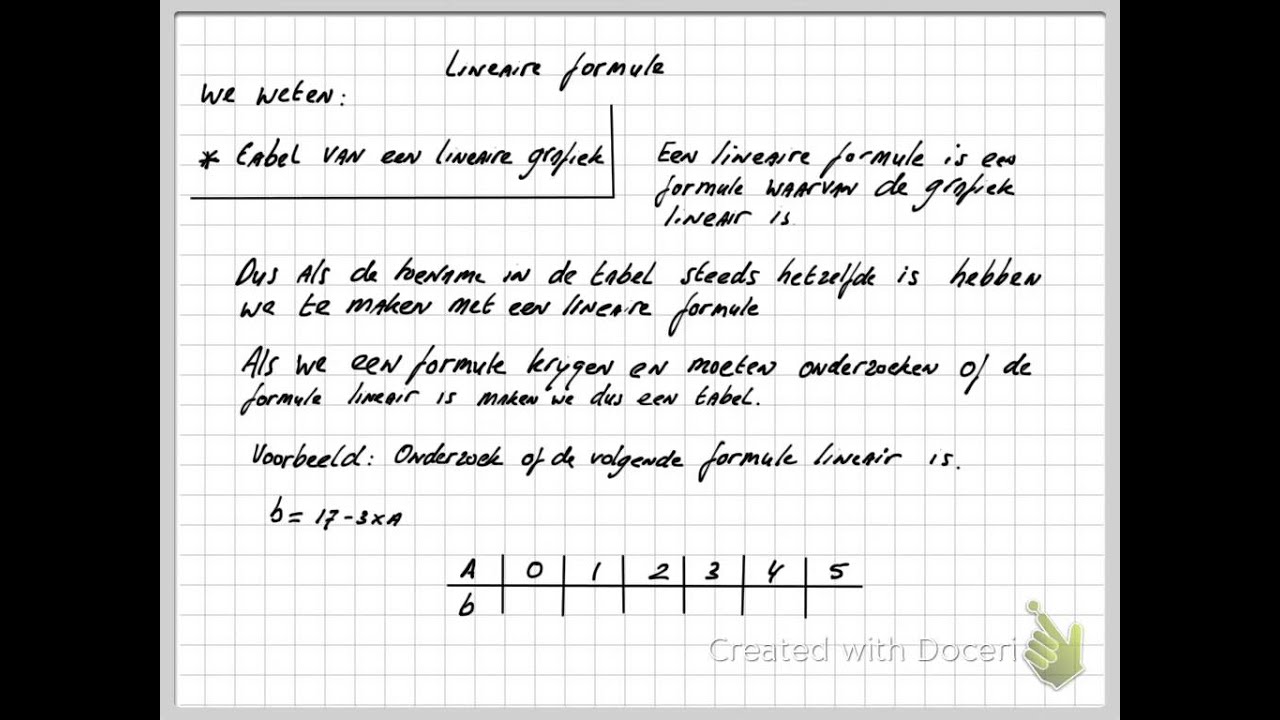 Lineaire formule
We weten:
* Tabel van een lineaire grafiek
Een lineaire formule is een
formule waarvan de grafiek
lineair is
Dus als de toename in de tabel steeds hetzelfde is hebben
we te maken met een lineaire formule
Als we een formule krygen en moeten onderzoeken of de
formule lineair is maken we dus een tabel.
Voorbeeld: Onderzoek of de volgende formule lineair is.
b = 17 - 3 x A
A 0 1 2 3 4 5
b
Created with Doceri